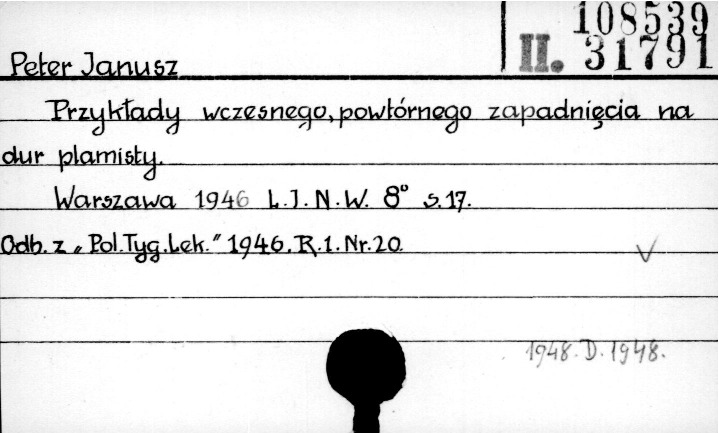 108539
II. 31791
Peter Janusz
Przykłady wczesnego, powtórnego zapadnięcia na
dur plamisty.
Warszawa 1946 L.J.N.W. 8° s. 17.
Odb. z „Pol. Tyg. Lek." 1946. R. 1. Nr. 20.
1948. D. 1948.